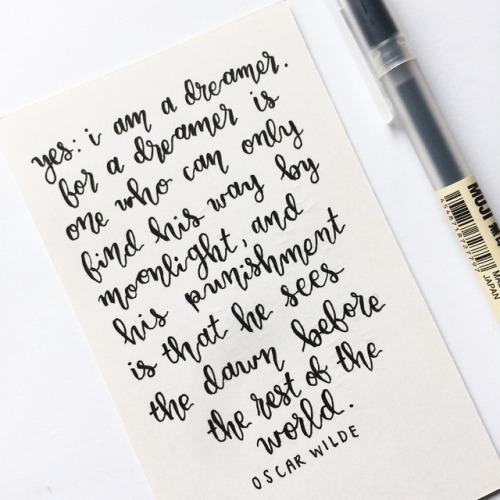 yes: i am a dreamer.
for a dreamer is
one who can only
find his way by
moonlight, and
his punishment
is that he sees
the dawn before
the rest of the
world.
OSCAR WILDE
MUJI
JAPAN